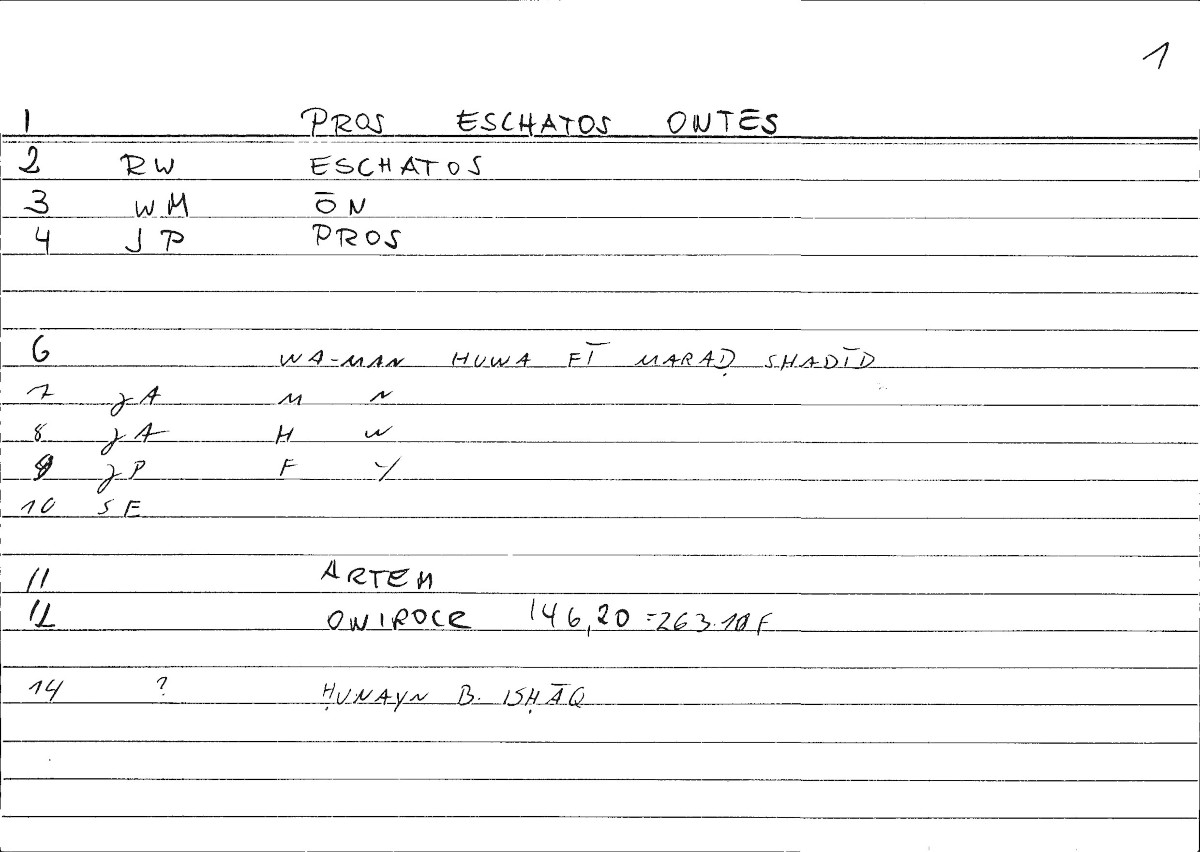 1
1 PROS ESCHATOS ONTĒS
2 RW ESCHATOS
3 WM ŌN
4 JP PROS
6 WA-MAN HUWA FĪ MARAḌ SHADĪD
7 JA M N
8 JA H W
9 JP F Y
10 SE
11 ARTEM
12 ONIROCR 146,20 = 263.18F
14 ? ḤUNAYN B. ISḤĀQ